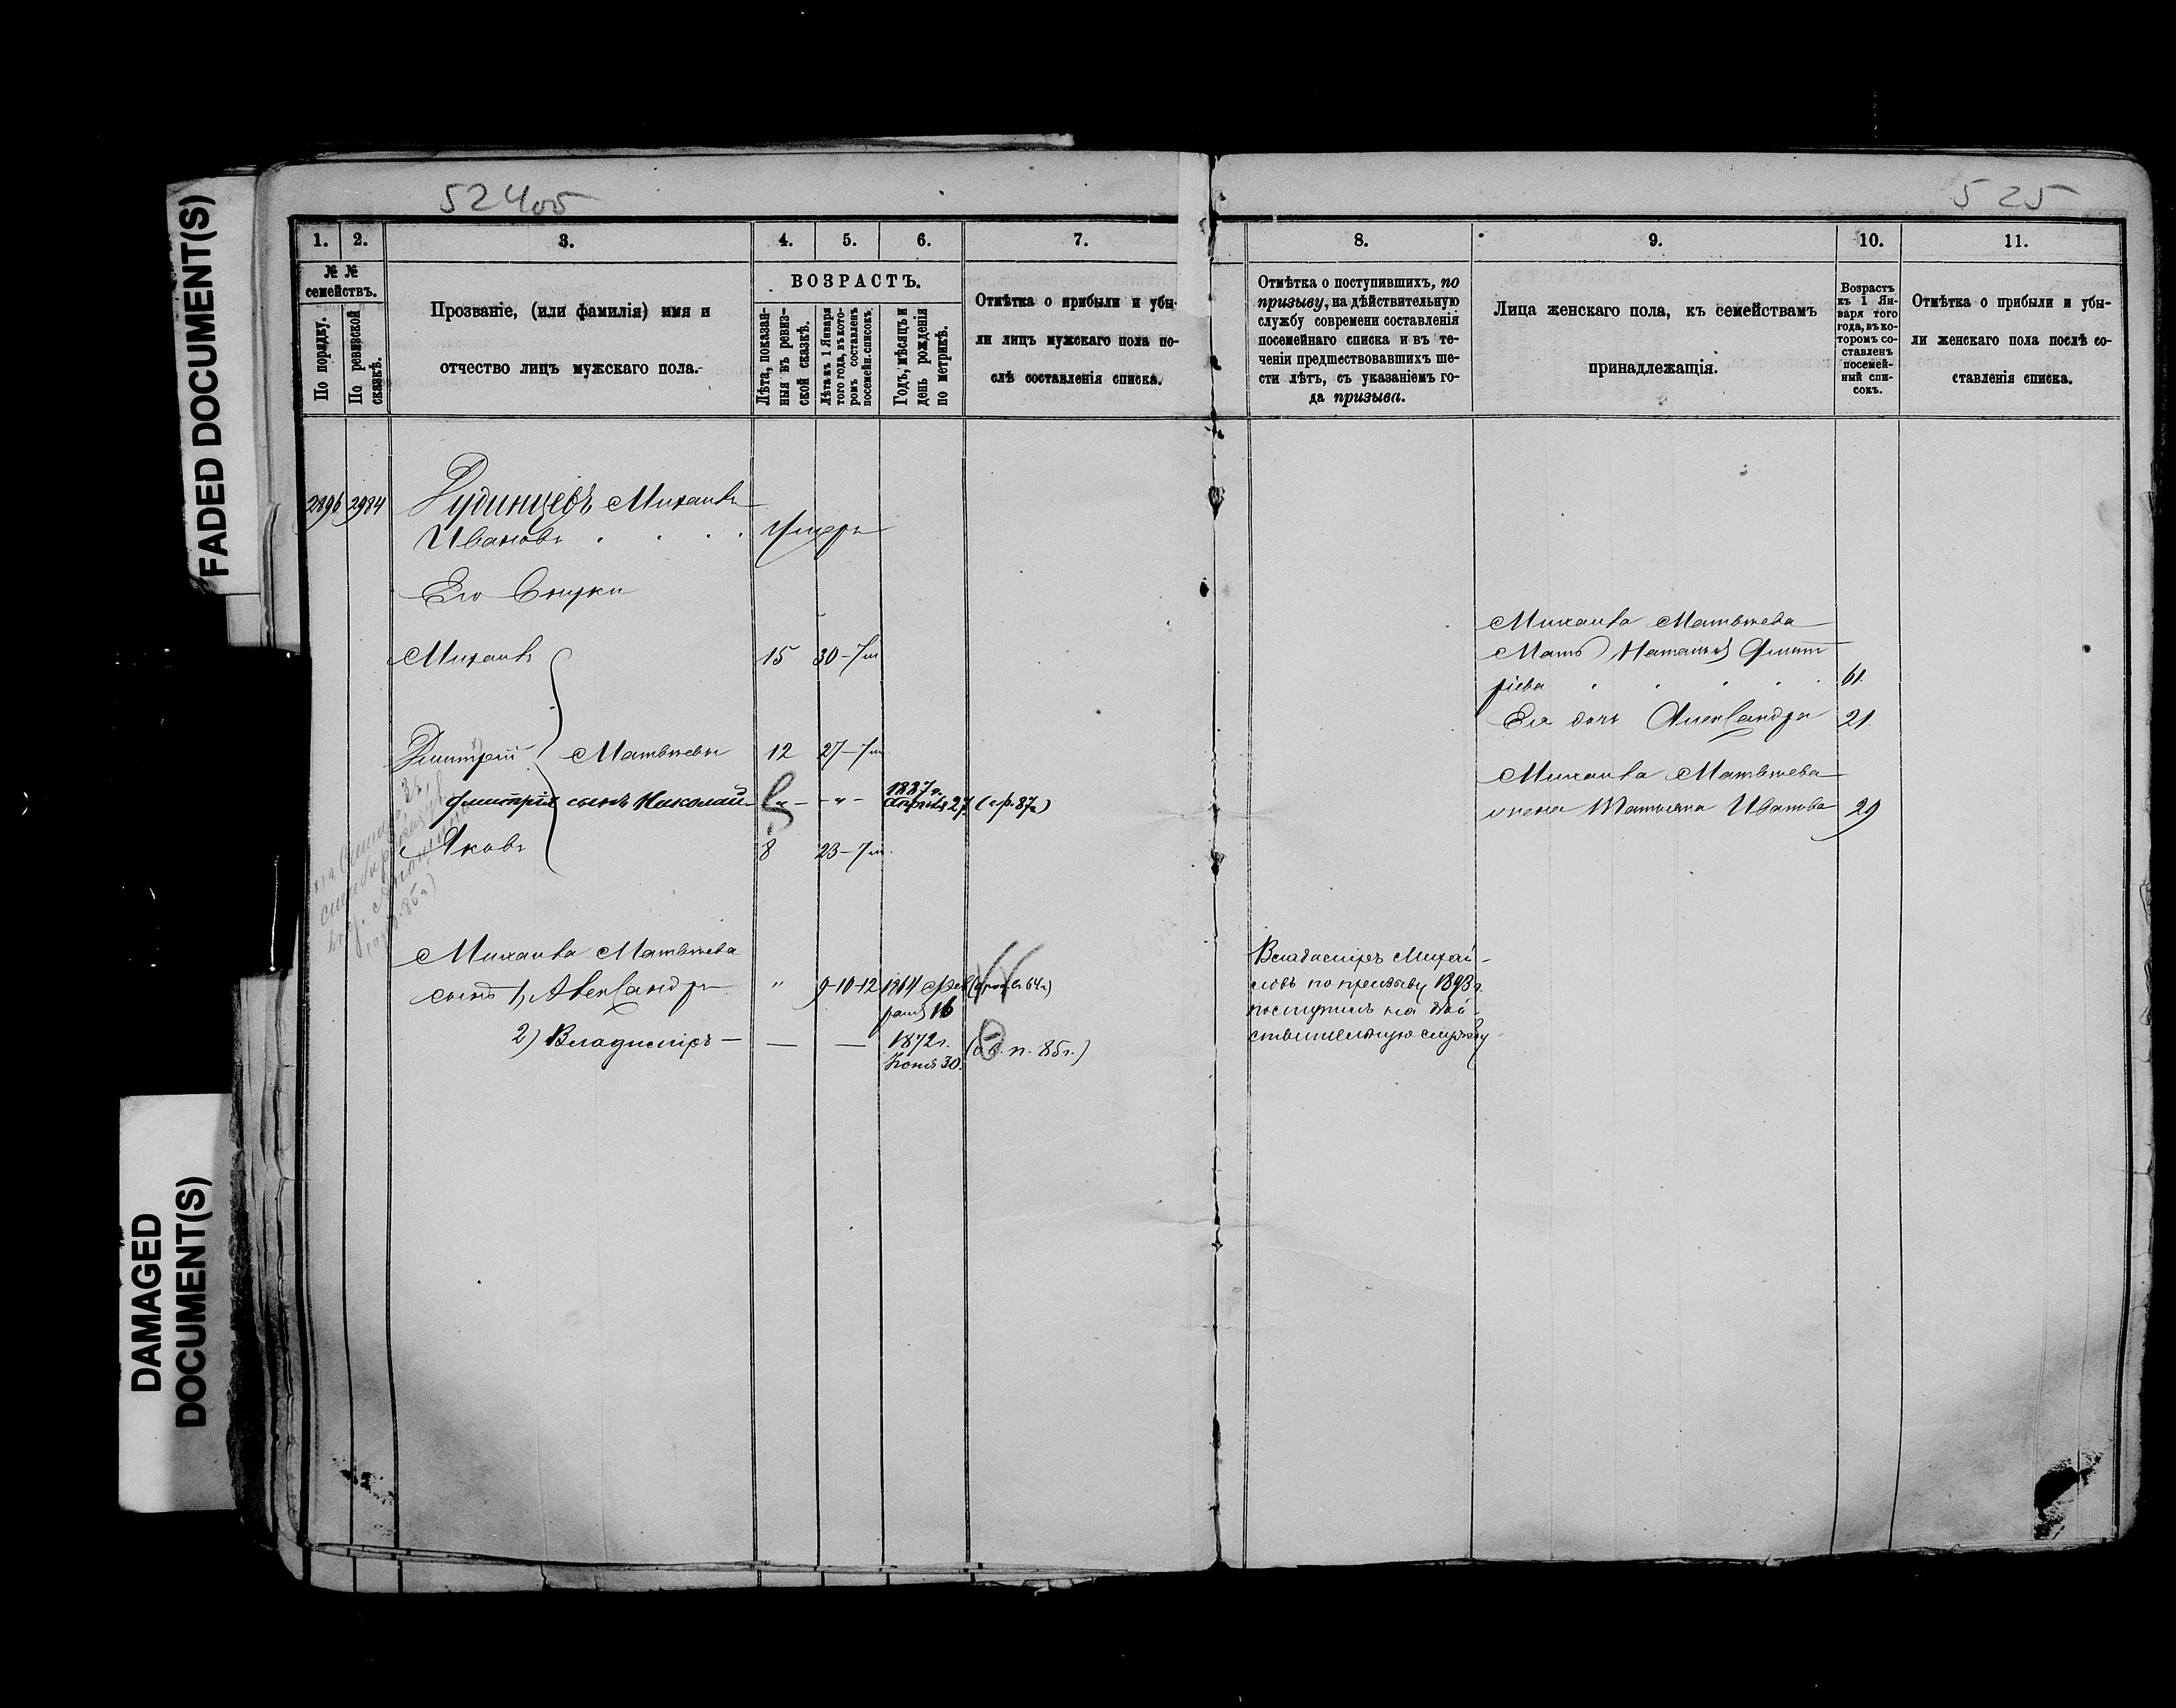 FADED DOCUMENT(S)
DAMAGED
DOCUMENT(S)
524об
525
1. 2. 3. 4. 5. 6. 7.
№ №
семействъ.
По порядку.
По ревизской
сказкѣ.
Прозваніе, (или фамилія) имя и
отчество лицъ мужскаго пола.
ВОЗРАСТЪ.
Лѣта, показан-
ныя въ ревиз-
ской сказкѣ.
Лѣта къ 1 Января
того года, въ кото-
ромъ составленъ
посемейн. списокъ.
Годъ, мѣсяцъ и
день рожденія
по метрикѣ.
Отмѣтка о прибыли и убы-
ли лицъ мужскаго пола по-
слѣ составленія списка.
2896 2984
Рудинцевъ Михаилъ
Ивановъ . . . . Умеръ
Его Внуки
Михаилъ 15 30-7м
Дмитрій Матвѣевы 12 27-7м
Дмитрія сынъ Николай - " - - " - 1887г. Апрѣля 27. (ср. 87г)
Яковъ 8 23-7м.
Михаила Матвѣева
сынъ 1, Александръ " 9-10-12 1864 Фев
раля 16
2) Владиміръ — — — 1872г. 85г.)
Іюня 30.
8. 9. 10. 11.
Отмѣтка о поступившихъ, по
призыву, на дѣйствительную
службу современи составленія
посемейнаго списка и въ те-
ченіи предшествовавшихъ ше-
сти лѣтъ, съ указаніемъ го-
да призыва.
Лица женскаго пола, къ семействамъ
принадлежащія.
Возрастъ
къ 1 Ян-
варя того
года, въ ко-
торомъ со-
ставленъ
посемей-
ный спи-
сокъ.
Отмѣтка о прибыли и убы-
ли женскаго пола послѣ со-
ставленія списка.
Михаила Матвѣева
Мать Наталья Дмит
ріева . . . . . 61.
Ея дочь Александра 21.
Михаила Матвѣева
жена Татьяна Иванова 29
Владиміръ Михай-
ловъ по призыву 1893г.
поступилъ на дѣй-
ствительную службу